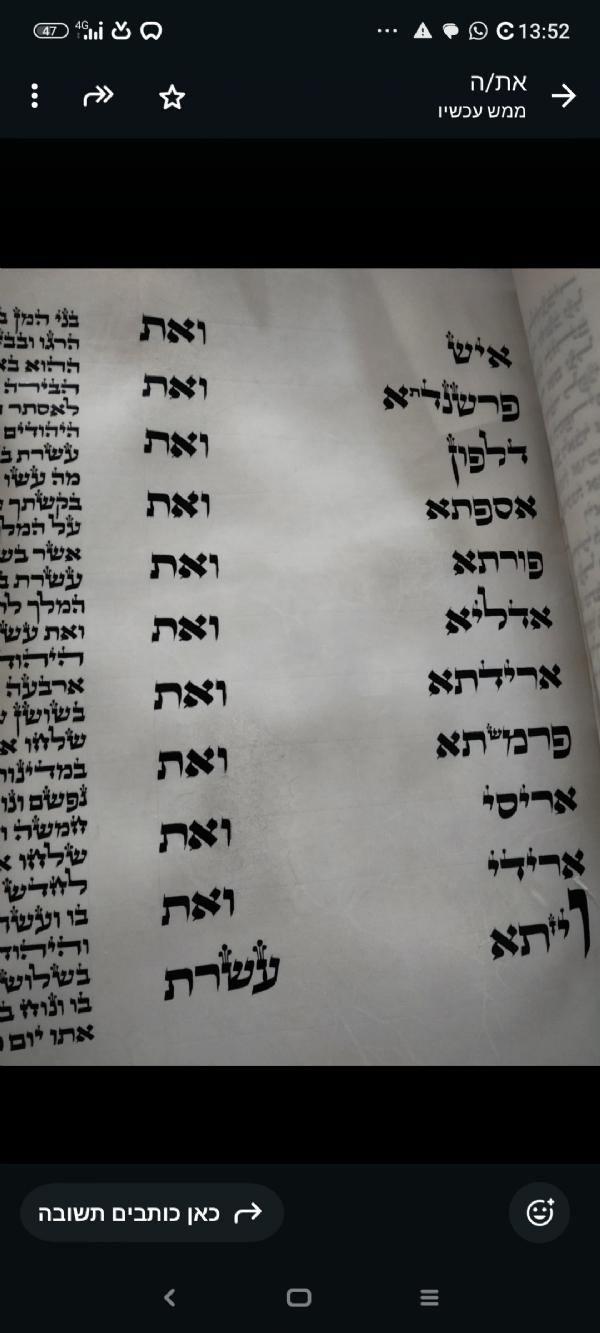 47 4G 13:52
את/ה
ממש עכשיו
איש ואת
פרשנדתא ואת
דלפון ואת
אספתא ואת
פורתא ואת
אדליא ואת
ארידתא ואת
פרמשתא ואת
אריסי ואת
ארידי ואת
ויזתא עשרת
בני המן
הרגו
ההוא
הבירה
לאסתר
היהודים
עשרת
מה עשו
בקשתך
על
אשר
עשרת
המלך
ואת
ארבעה
בשושן
שלחו
נפשם
חמשה
שלחו
לחדש
בו
בו ונוח
אתו יום
כאן כותבים תשובה